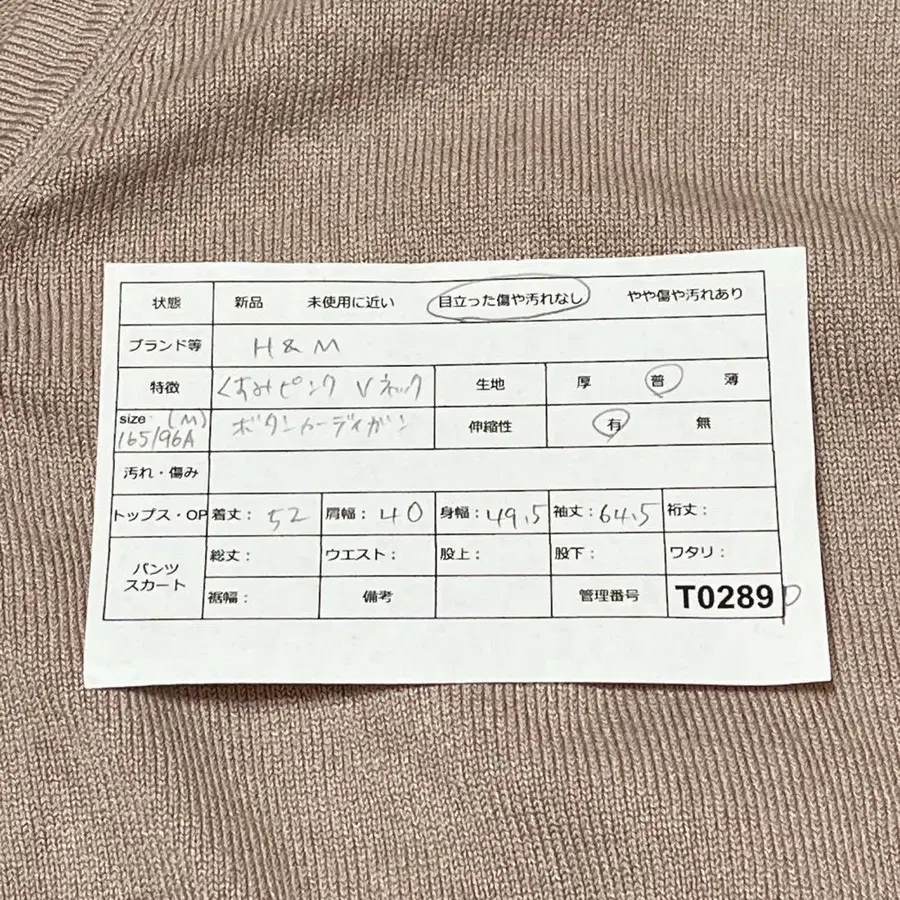 状態 新品 未使用に近い 目立った傷や汚れなし やや傷や汚れあり
ブランド等 H & M
特徴 くすみピンク Vネック 生地 厚 普 薄
size: (M) 165/96A ボタンカーディガン 伸縮性 有 無
汚れ・傷み
トップス・OP 着丈: 52 肩幅: 40 身幅: 49.5 袖丈: 64.5 裄丈:
パンツ スカート 総丈: ウエスト: 股上: 股下: ワタリ:
裾幅: 備考 管理番号 T0289